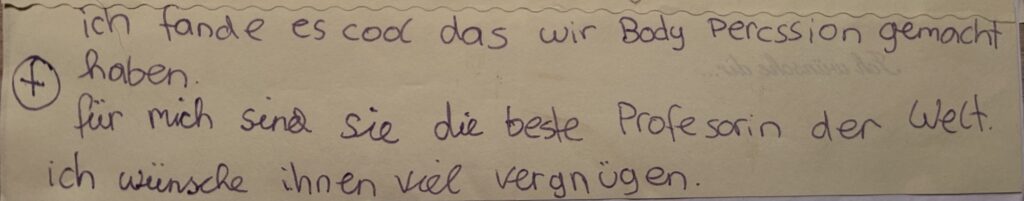 ich fande es cool das wir Body Percssion gemacht
+ haben.
für mich sind sie die beste Profesorin der Welt.
ich wünsche ihnen viel vergnügen.